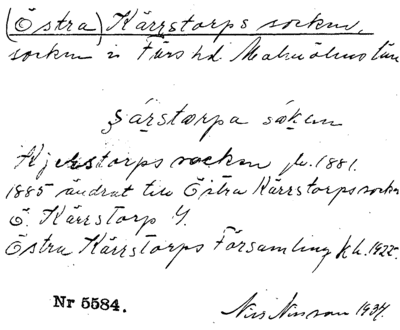 (Östra) Kärrstorps socken,
socken i Färs hd Malmöhus län
şärstarpa såken
Kjerstorps socken jb. 1881.
1885 ändrat till Östra Kärrstorps socken
Ö. Kärrstorp Y.
Östra Kärrstorps Församling kb. 1922.
Nr 5584.
Nils Nilsson 1934.